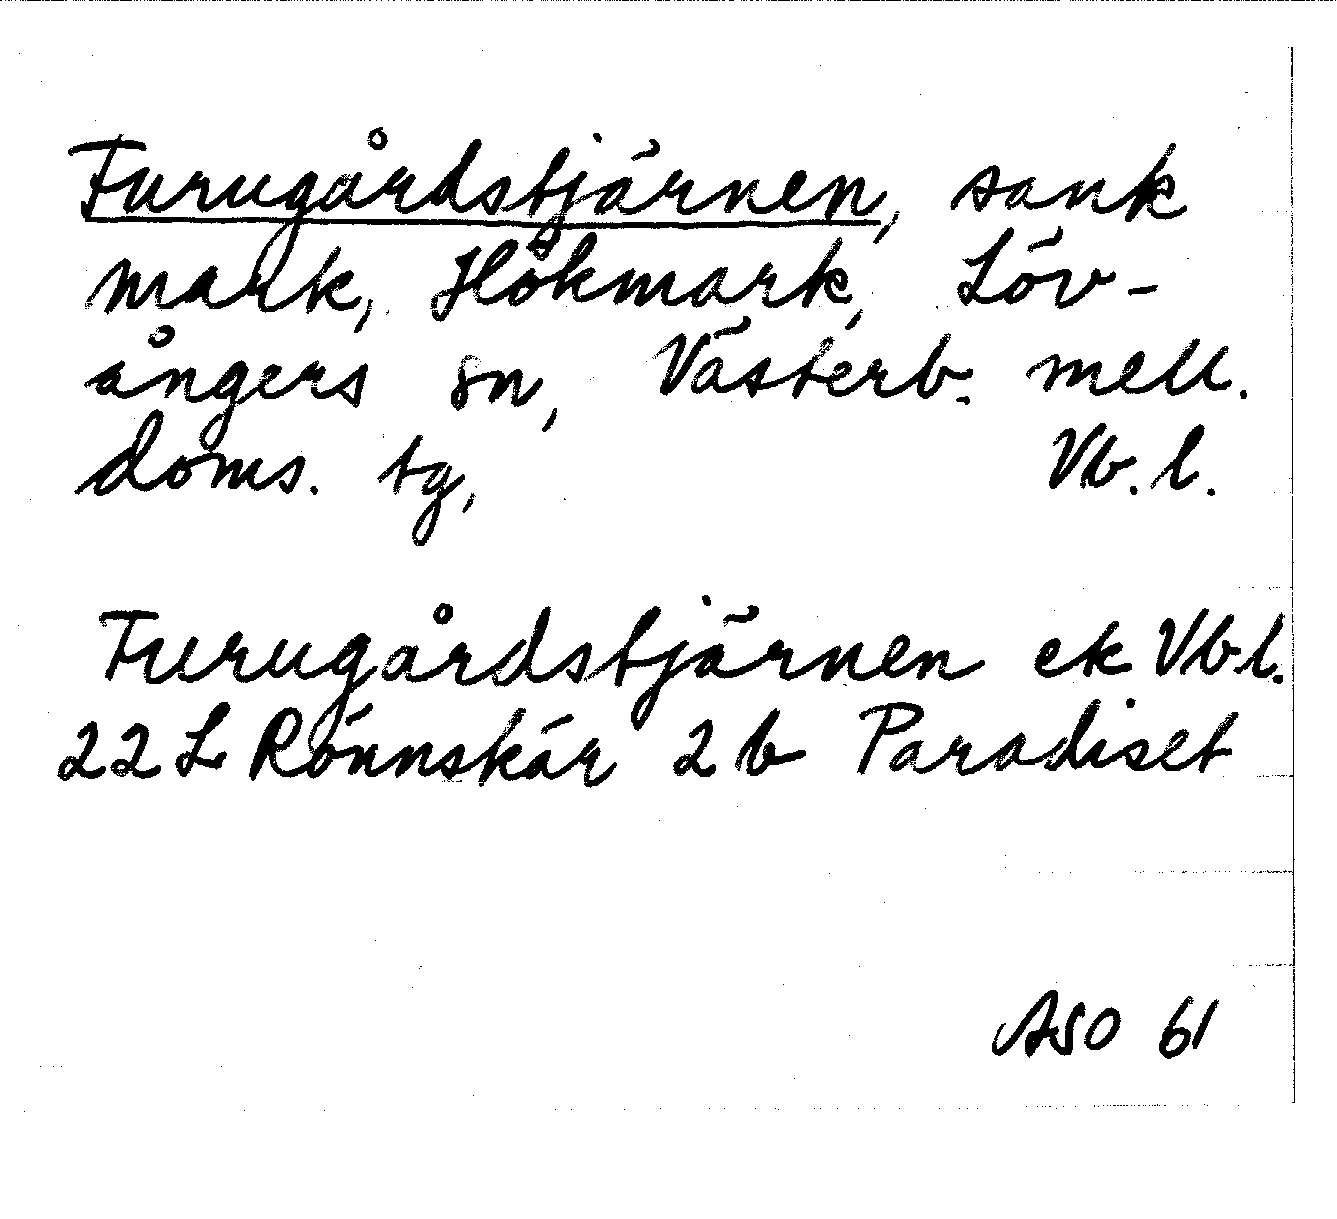 Furugårdstjärnen, sank
mark, Hökmark, Löv-
ångers sn, Västerb. mell.
doms. tg, Vb. l.
Furugårdstjärnen ek Vb.l.
22 L Rönnskär 2 b Paradiset
ASO 61